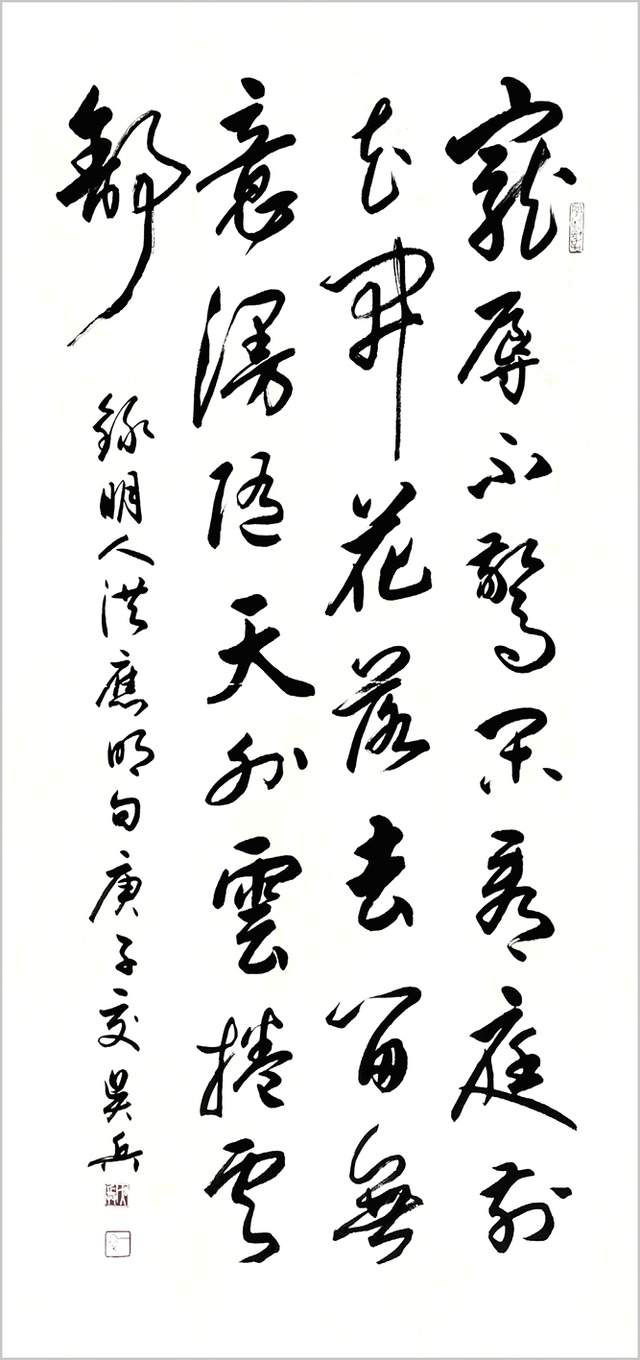 寵辱不驚閑看庭前
花開花落去留無
意漫隨天外雲捲雲
舒
錄明人洪應明句庚子夏吳兵